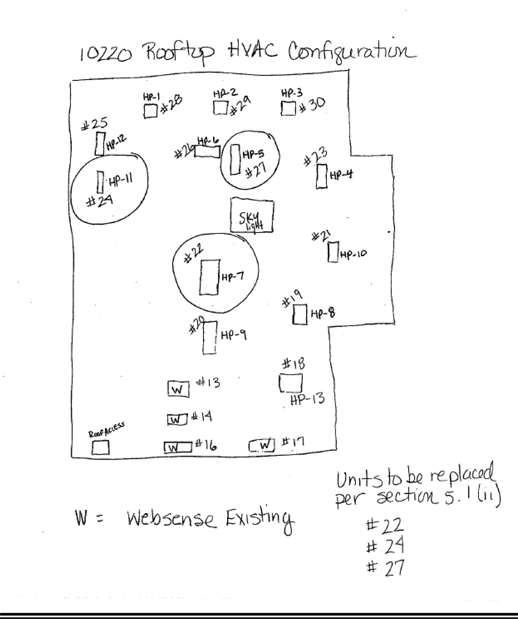 10220 Rooftop HVAC Configuration
HP-1
#28
HP-2
#29
HP-3
#30
#25
HP-12
#26
HP-6
HP-5
#27
#23
HP-4
HP-11
#24
SKY
light
#21
HP-10
#22
HP-7
#19
HP-8
#20
HP-9
#18
HP-13
W #13
W #14
W #16
W #17
ROOF ACCESS
Units to be replaced
per section 5.1(ii)
#22
#24
#27
W = Websense Existing